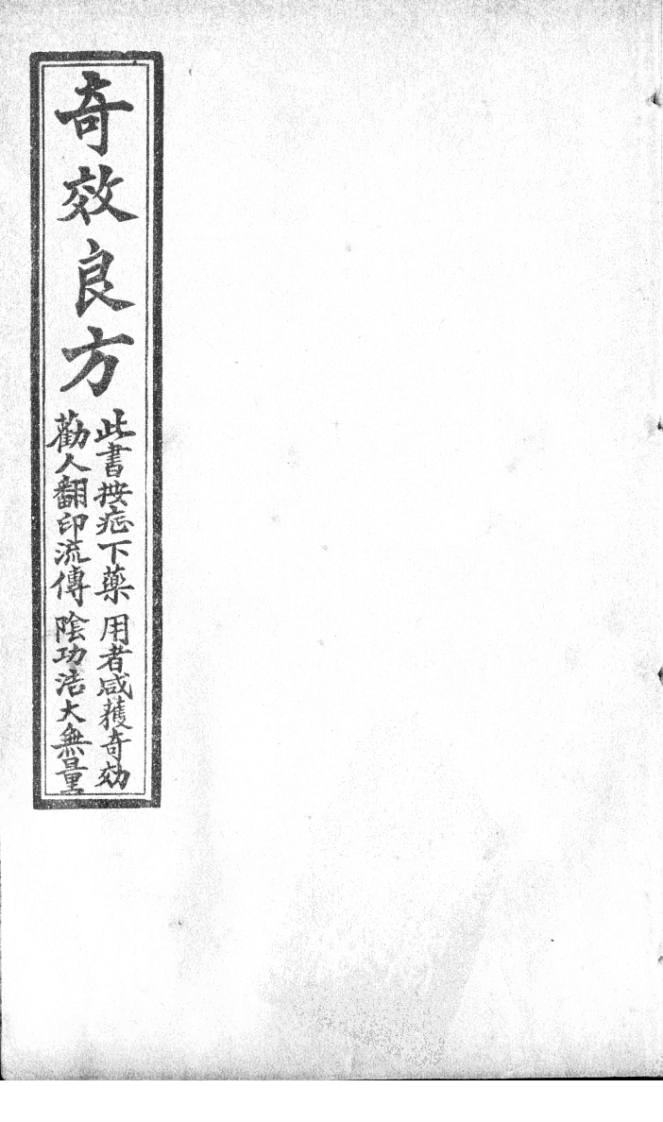 奇效良方
此書按症下藥用者咸獲奇効
勸人翻印流傳陰功浩大無量